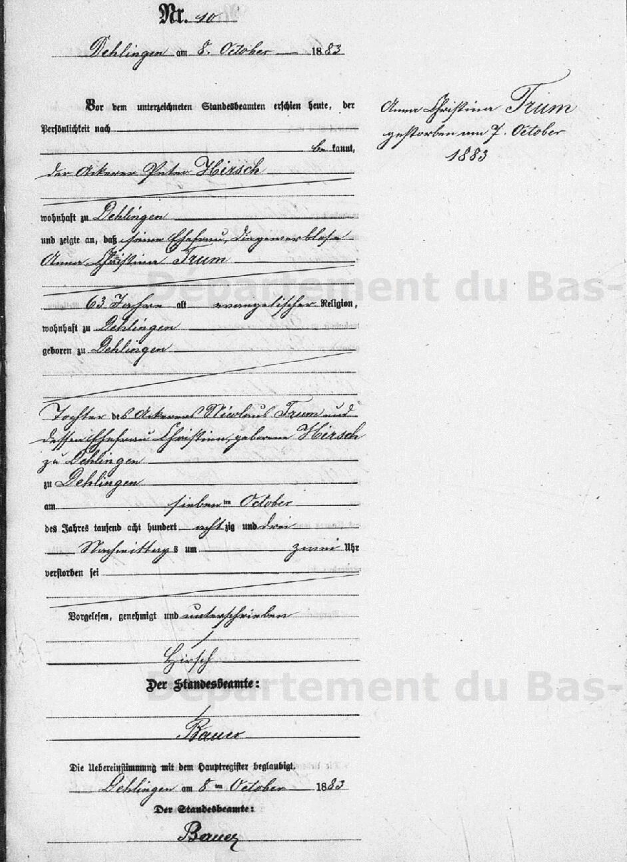 Nr. 10
Dehlingen am 8. October 1883
Vor dem unterzeichneten Standesbeamten erschien heute, der
Persönlichkeit nach
be kannt,
der Ackerer Peter Hirsch
wohnhaft zu Dehlingen
und zeigte an, daß seine Ehefrau, die gewerblose
Anna Christina Trum
63 Jahre alt evangelischer Religion,
wohnhaft zu Dehlingen
geboren zu Dehlingen
Tochter des Ackerers Nicolaus Trum und
dessen Ehefrau Christina, geborene Hirsch
zu Dehlingen
zu Dehlingen
am sieben ten October
des Jahres tausend acht hundert acht zig und drei
Nachmittag s um zwei Uhr
verstorben sei
Vorgelesen, genehmigt und unterschrieben
Hirsch
Der Standesbeamte:
Bauer
Die Uebereinstimmung mit dem Hauptregister beglaubigt.
Dehlingen am 8 ten October 1883
Der Standesbeamte:
Bauer
Anna Christina Trum
gestorben am 7. October
1883
Département du Bas-
Département du Bas-